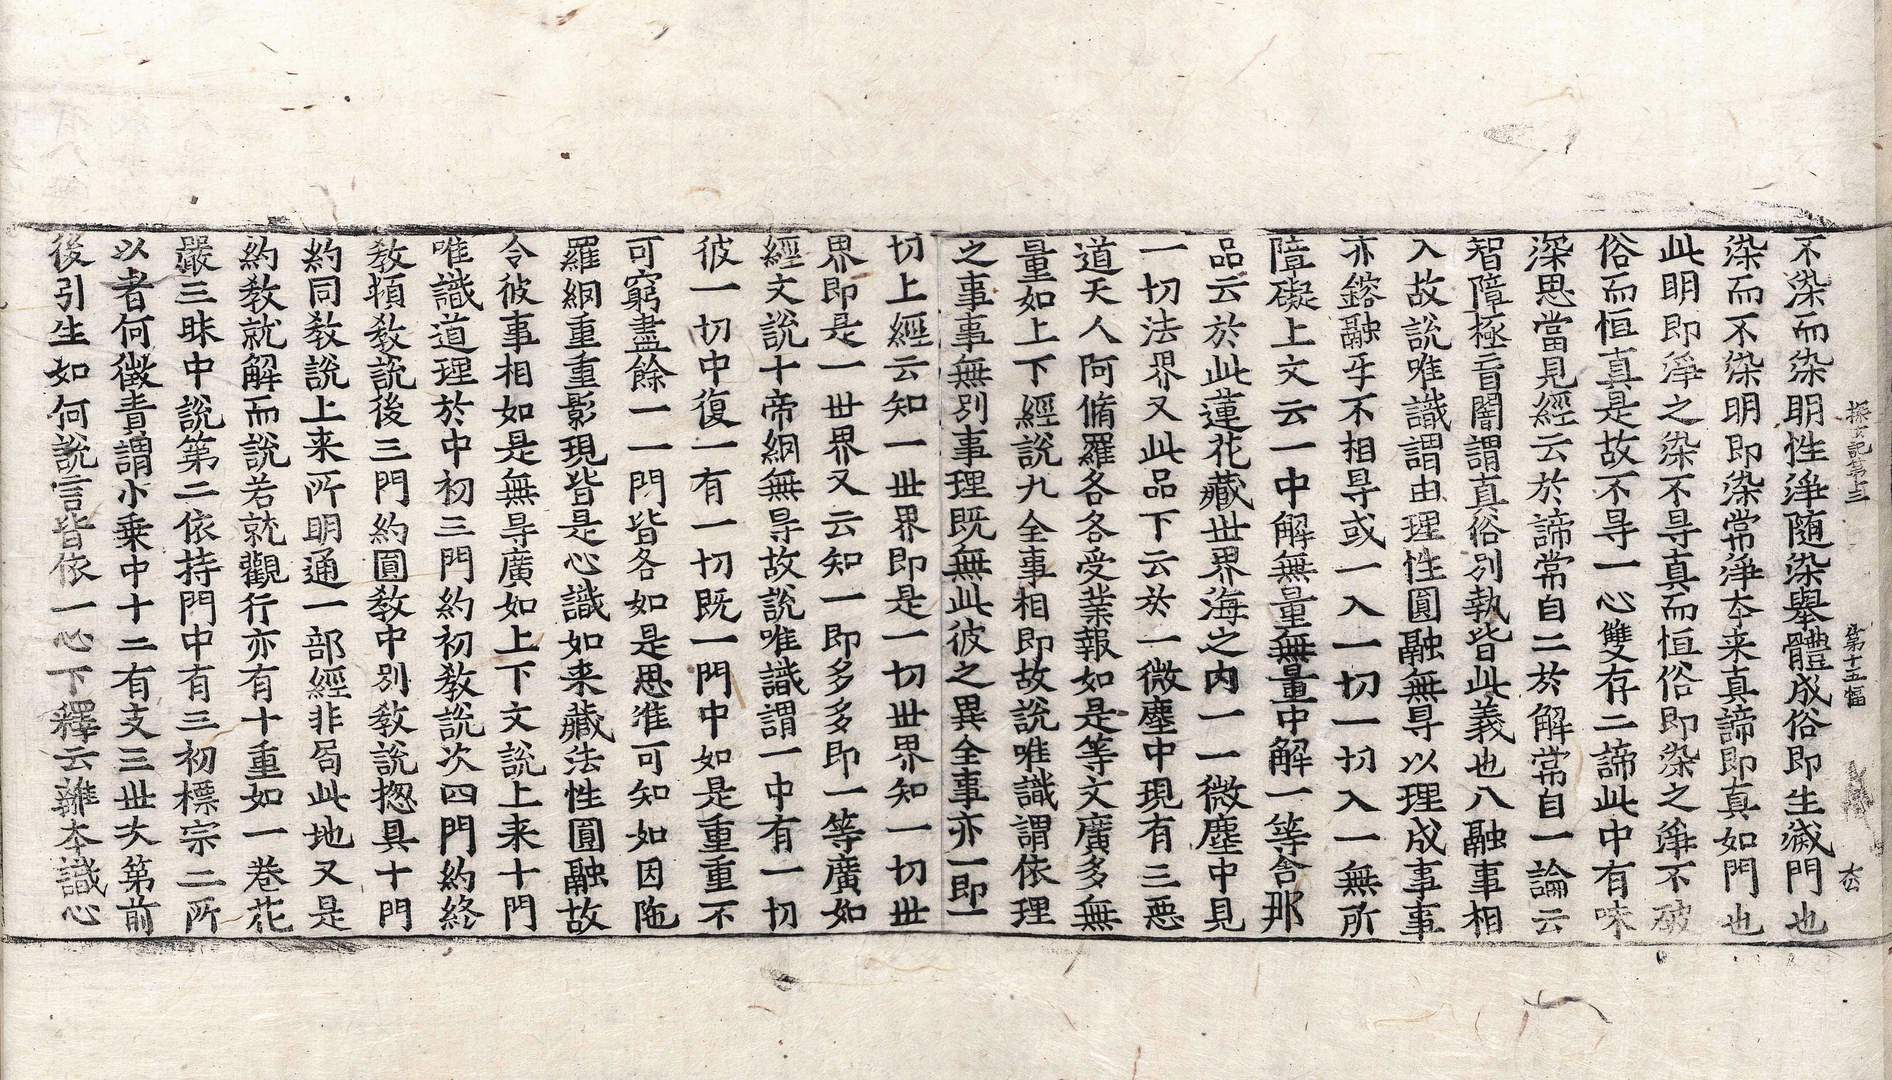 探玄記第十三 第十五幅 太
不染而染明性淨随染舉體成俗即生滅門也
染而不染明即染常淨本来真諦即真如門也
此明即淨之染不㝵真而恒俗即染之淨不破
俗而恒真是故不㝵一心雙存二諦此中有味
深思當見經云於諦常自二於解常自一論云
智障極盲闇謂真俗別執皆此義也八融事相
入故說唯識謂由理性圓融無㝵以理成事事
亦鎔融𠄔不相㝵或一入一切一切入一無所
障礙上文云一中解無量無量中解一等舍那
品云於此蓮花藏世界海之内一一微塵中見
一切法界又此品下云於一微塵中現有三惡
道天人阿脩羅各各受業報如是等文廣多無
量如上下經說九全事相即故說唯識謂依理
之事事無別事理既無此彼之異全事亦一即一
切上經云知一世界即是一切世界知一切世
界即是一世界又云知一即多多即一等廣如
經文說十帝網無㝵故說唯識謂一中有一切
彼一切中復一有一切既一門中如是重重不
可窮盡餘一一門皆各如是思准可知如因陁
羅網重重影現皆是心識如来藏法性圓融故
令彼事相如是無㝵廣如上下文說上来十門
唯識道理於中初三門約初教說次四門約終
教頓教說後三門約圓教中別教說揔具十門
約同教說上来所明通一部經非局此地又是
約教就解而說若就觀行亦有十重如一卷花
嚴三昧中說第二依持門中有三初標宗二所
以者何徵責謂小乗中十二有支三世次第前
後引生如何說言皆依一心下釋云雜本識心